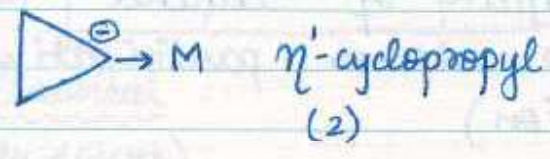 ⊖
→ M η¹-cyclopropyl
(2)